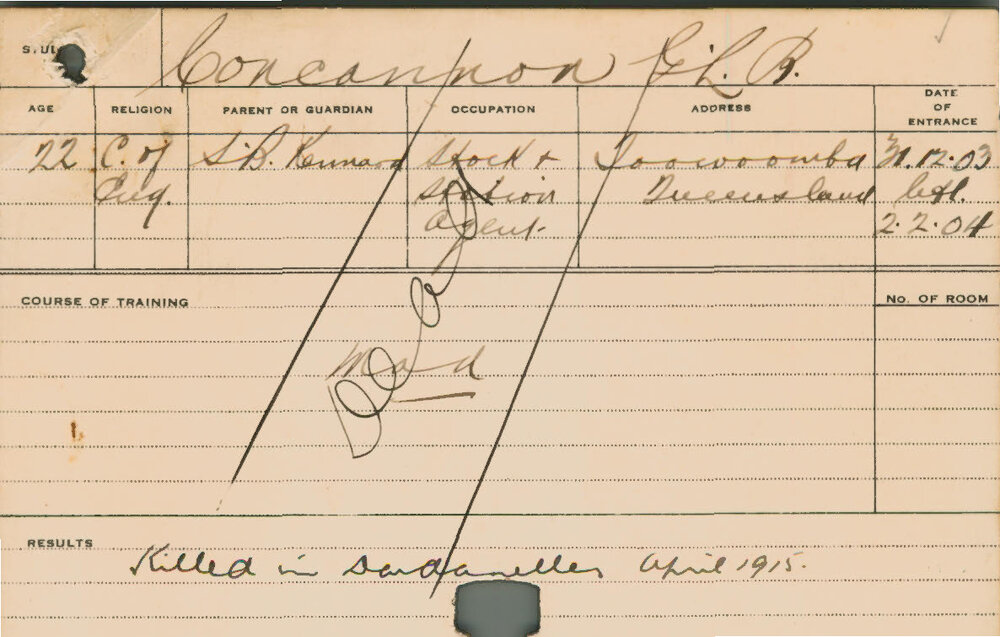 Concannon G. L. B.
AGE RELIGION PARENT OR GUARDIAN OCCUPATION ADDRESS DATE OF ENTRANCE
22 C. of S. B. Kennard Stock & Toowoomba 31.12.03
Eng. Station Queensland
Agent. 2.2.04
COURSE OF TRAINING No. OF ROOM
Dead
RESULTS
Killed in Dardanelles April 1915.